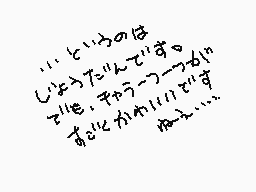 …というのは
じょうだんです。
でも、キャラ一つ一つが
すごくかわいいです
ねぇ……